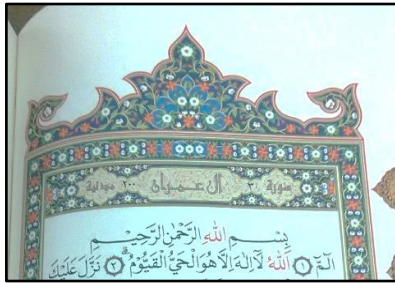 سورة ٣ آل عمران ٢٠٠ مدنية
بِسْمِ اللَّهِ الرَّحْمَٰنِ الرَّحِيمِ
الٓمٓ ١ اللَّهُ لَآ إِلَٰهَ إِلَّا هُوَ الْحَىُّ الْقَيُّومُ ٢ نَزَّلَ عَلَيْكَ